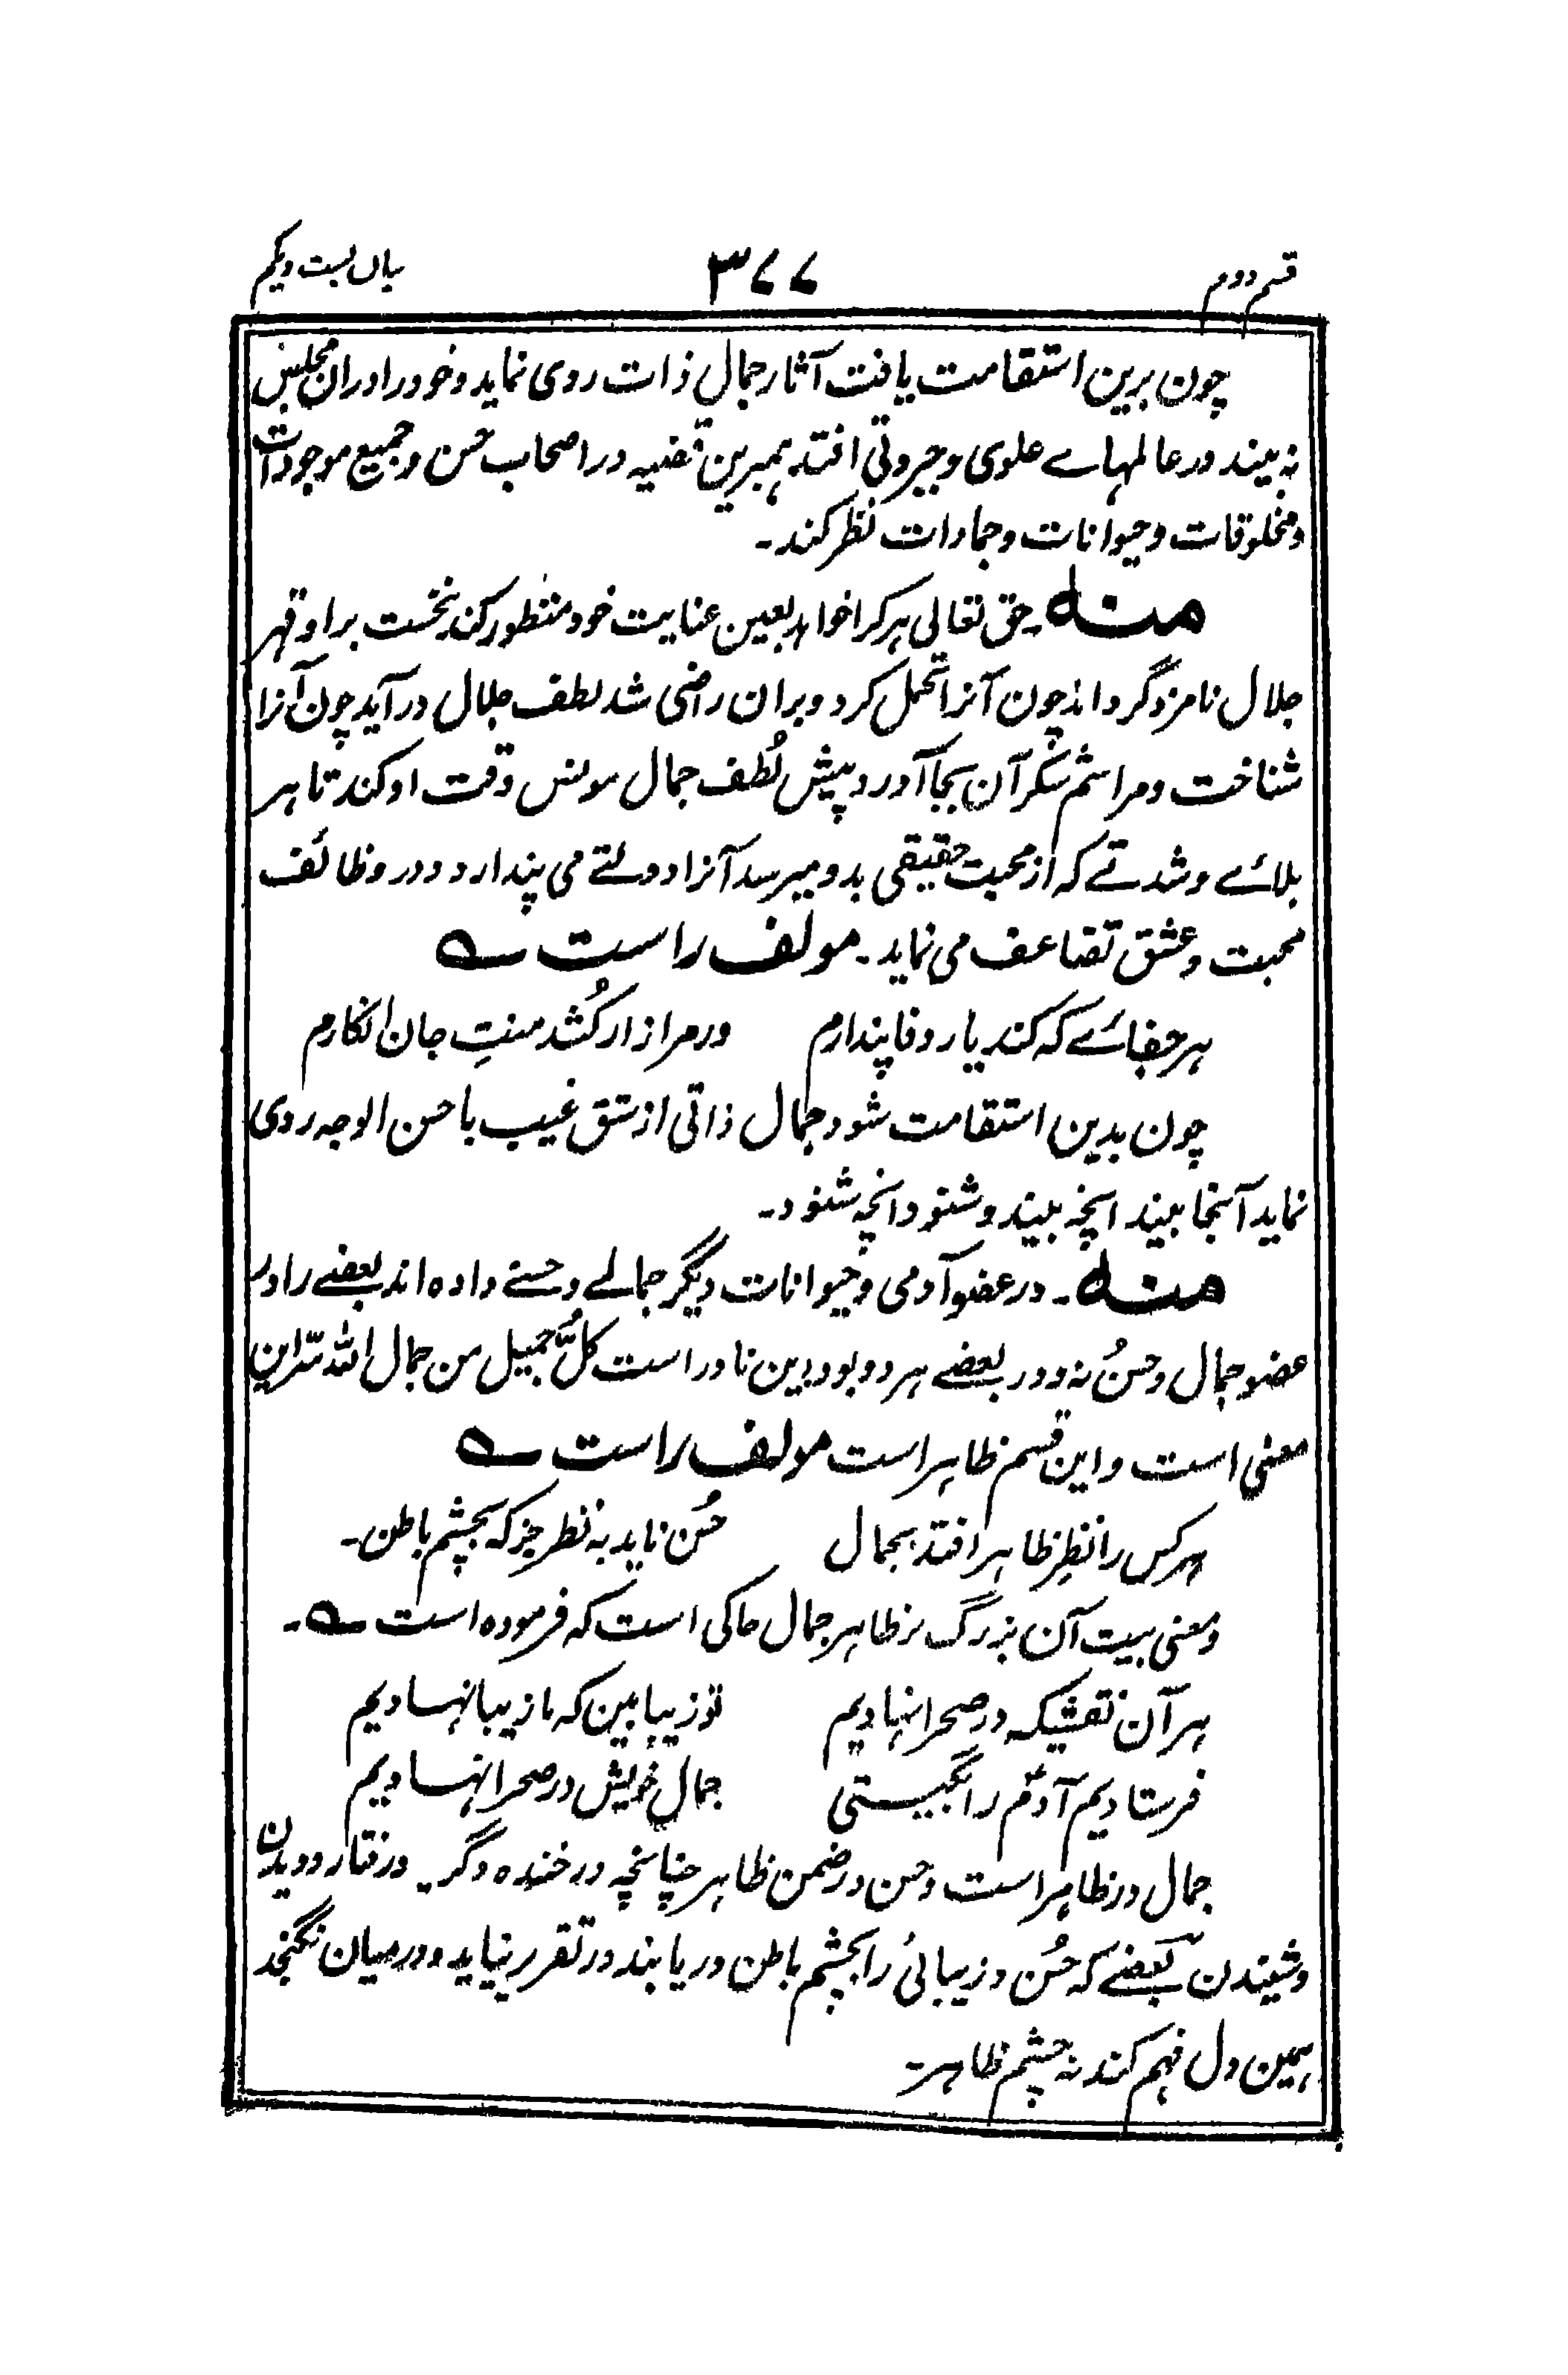 قسم دوم ۳۷۷ بیان بست و یکم
چون برین استقامت یافت آثار جمال ذات روی نماید و خود را دران مجلس
نه بیند در عالمہاے علوی و جبروتی افتد ہمبرین قضیہ در اصحاب حسن و جمیع موجودات
و مخلوقات و حیوانات و جمادات نظر کند۔
منه۔ حق تعالی ہر کرا خواہد بعین عنایت خود منظور کند نخست براو قہر
جلال نامزد گرداند چون آنرا تحمل کرد و بران راضی شد لطف جلال در آید چون آنرا
شناخت و مراسم شکر آن بجا آورد پیش لُطف جمال مونس وقت او کند تا ہر
بلائے و شدتے کہ از محبت حقیقی بدو میرسد آنرا دولتے می پندارد و در وظائف
محبت و عشق تضاعف می نماید۔ مولف راست ؎
ہر جفائے کہ کند یار وفا پندارم ور مرا زار کُشد منتِ جان انگارم
چون بدین استقامت شود جمال ذاتی از تتق غیب باحسن الوجہ روی
نماید آنجا بیند انچہ بیند و شنود انچہ شنود۔
منه۔ در عضو آدمی و حیوانات دیگر جمالے و حسنے دادہ اند بعضے را در
عضو جمال و حسنُ نہ و در بعضے ہر دو بود و این نادر است کلُّ جمیل من جمال اللّٰہ سّر این
معنی است و این قسم ظاہر است مولف راست ؎
ہر کس را نظرِ ظاہر افتد بجمال حُسن ناید بہ نظر جز کہ بچشم باطن۔
و معنی بیت آن بزرگ بر ظاہر جمال حاکی است کہ فرمودہ است ؎۔
ہر آن نقشیکہ در صحرا نہادیم تو زیبا بین کہ ما زیبا نہادیم
فرستادیم آدمؑ را بگیستی جمال خویش در صحرا نہادیم
جمال در ظاہر است و حسن در ضمن ظاہر چنانچہ در خندہ و گریہ و رفتار و دیدن
و شنیدن بعضے کہ حُسن و زیبائی را بچشم باطن دریابند در تقریر نیاید و در میان نگنجد
ہمین دل فہم کند نہ چشم ظاہر۔